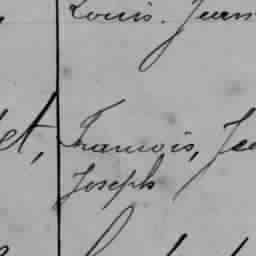 Louis. Jean
et, Francois, Je
Joseph